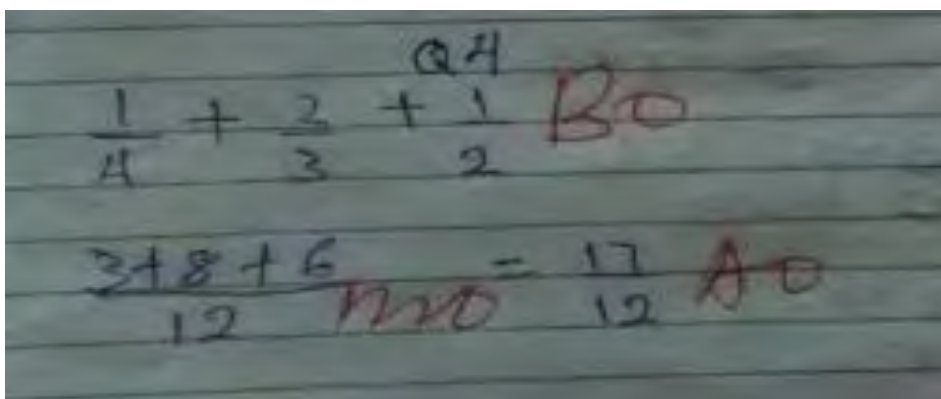 Q4
1/4 + 2/3 + 1/2 B0
3+8+6/12 M0 = 17/12 A0